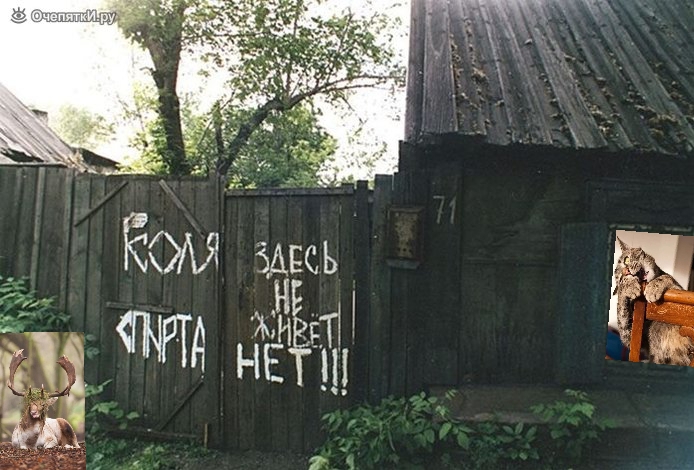 ОчепяткИ.ру
КОЛЯ
СПИРТА
ЗДЕСЬ
НЕ
ЖИВЁТ
НЕТ!!!
71